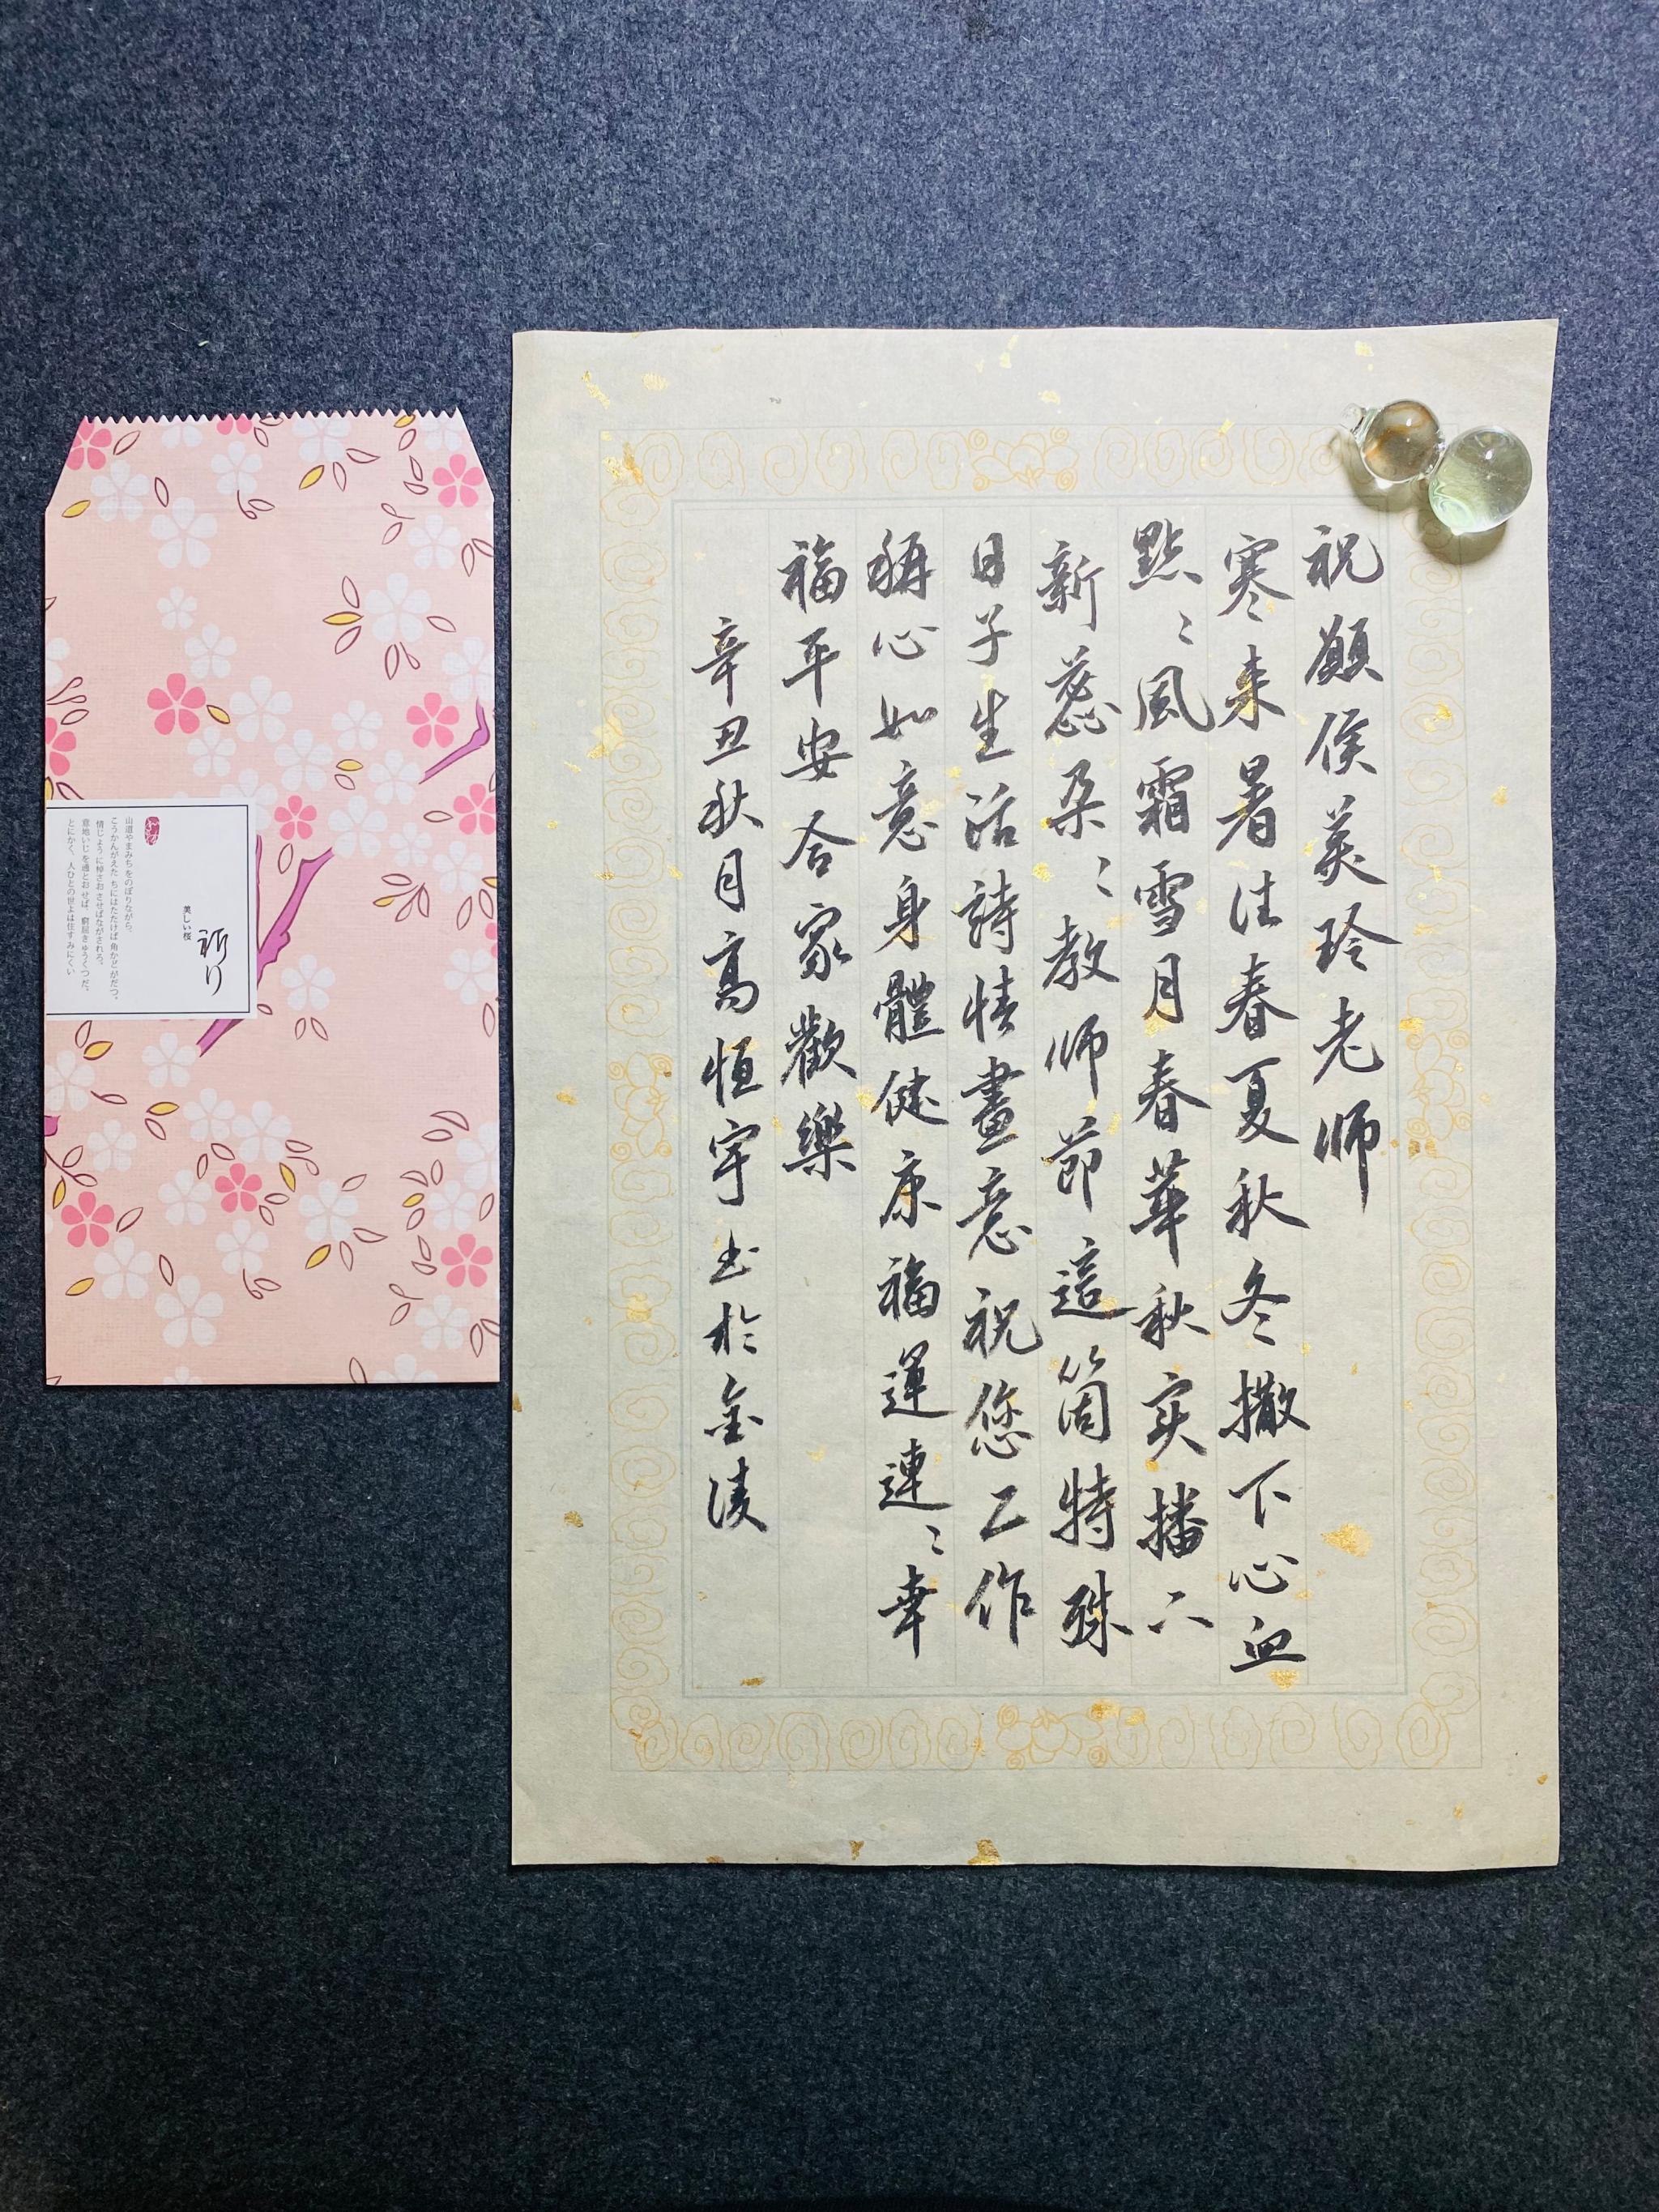 祝願侯美玲老师
寒来暑往春夏秋冬撒下心血
點〻風霜雪月春華秋实播下
新蕊朵〻教师節這箇特殊
日子生活詩情畫意祝您工作
稱心如意身體健康福運連〻幸
福平安合家歡樂
辛丑秋月高恒宇书於金陵
祈り
美しい桜
山道やまみちをのぼりながら、
こうかんがえた ちにはたたけば 角かどがだつ。
情じょうに棹さお させばながされる。
意地いじを通とおせば、窮屈きゅうくつだ。
とにかく、人ひとの世よは住すみにくい